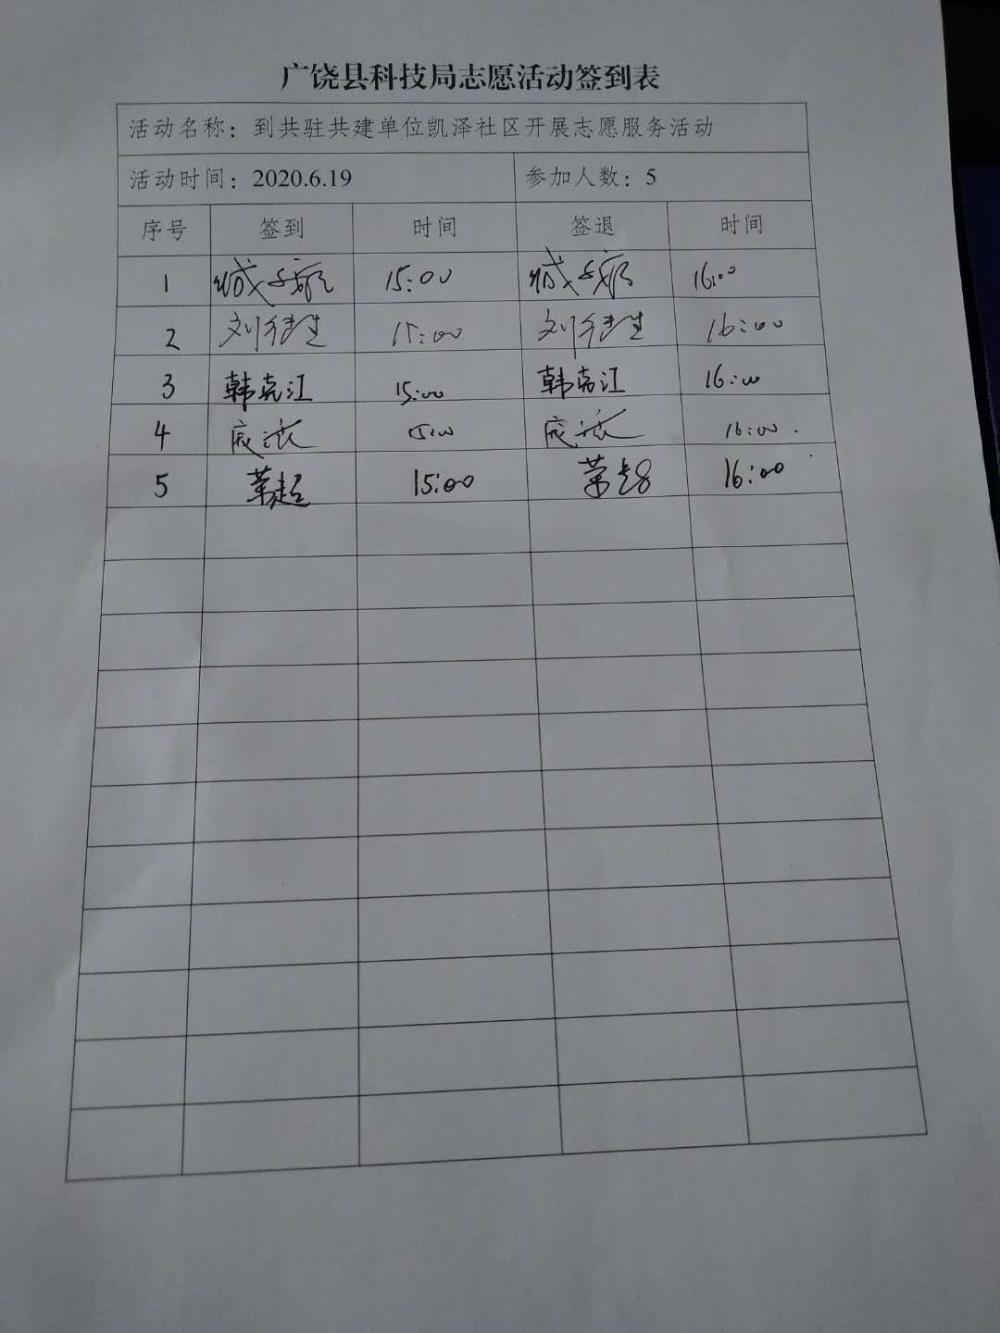 广饶县科技局志愿活动签到表
活动名称：到共驻共建单位凯泽社区开展志愿服务活动
活动时间：2020.6.19 参加人数：5
序号 签到 时间 签退 时间
1 15:00 16:00
2 15:00 16:00
3 韩克江 15:00 韩克江 16:00
4 15:00 16:00
5 15:00 16:00